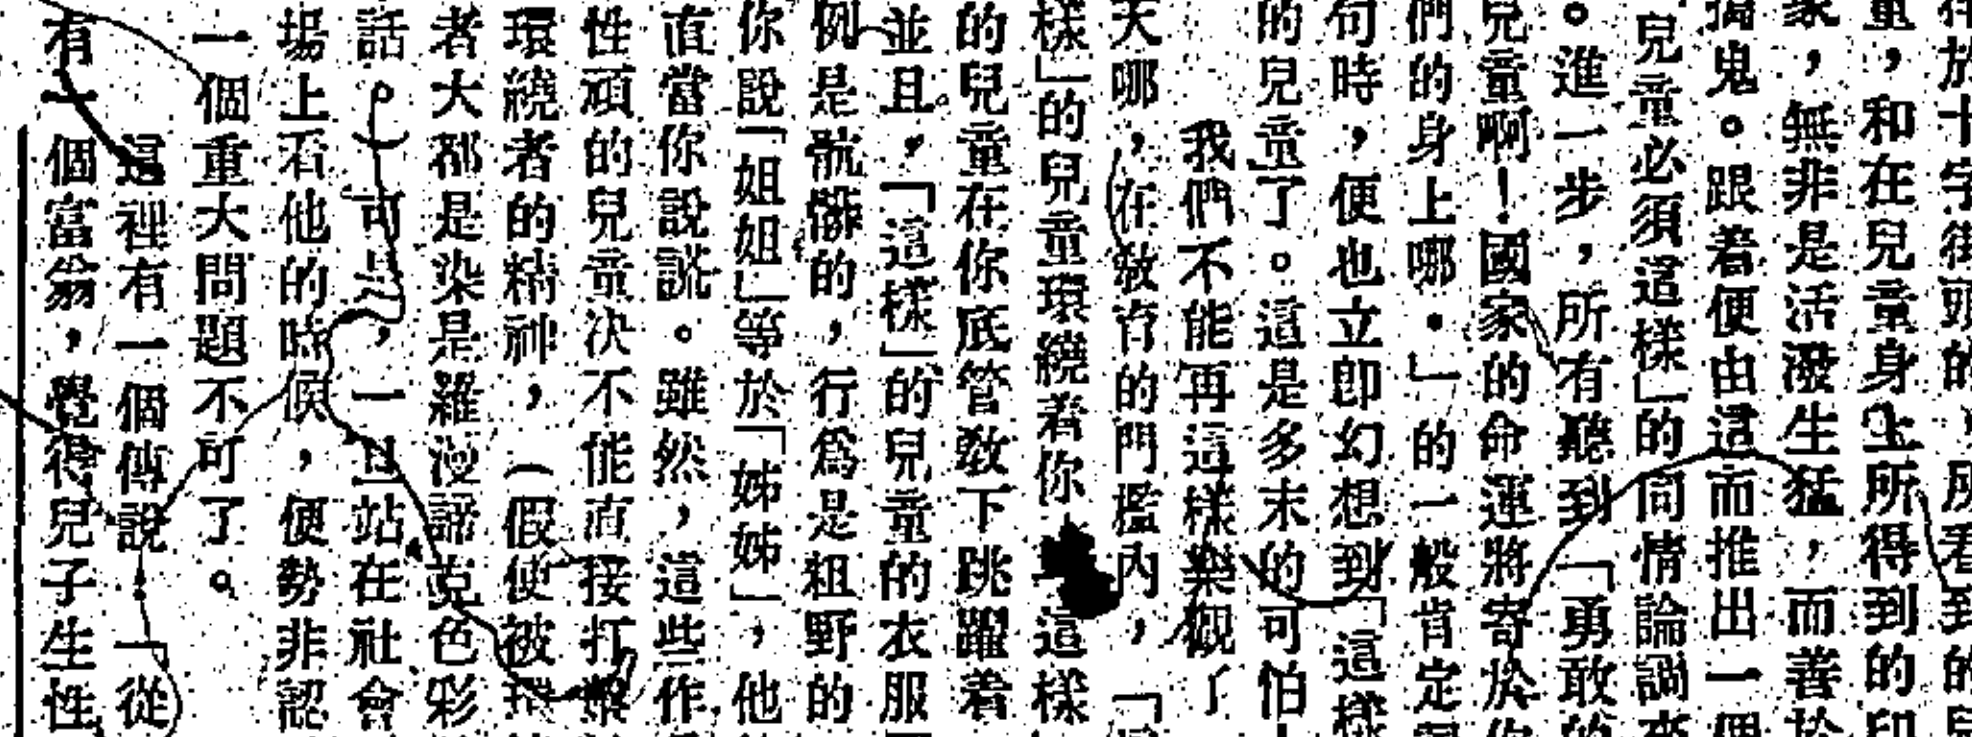 往於十字街頭的，所看到的兒
童，和在兒童身上所得到的印
家，無非是活潑生猛，而善於
搗鬼。跟着便由這而推出一個
兒童必須這樣」的同情論調來
。進一步，所有聽到「勇敢的
兒童啊！國家的命運將寄於你
們的身上哪．」的一般肯定
句時，便也立卽幻想到「這樣
的兒童了。這是多末的可怕
我們不能再這樣樂觀了
天哪，在敎育的門檻內，「
樣」的兒童環繞着你「這樣
的兒童在你底管敎下跳躍着
並且，「這樣」的兒童的衣服
例是骯髒的，行爲是粗野的
你說「姐姐」等於「姊姊」，他
直當你說謊。雖然，這些作
性頑的兒童决不能直接打擊
環繞者的精神，（假使被環
者大都是染是羅漫諦克色彩
話。）可是，一旦站在社會
場上看他的時候，便勢非認
一個重大問題不可了。
這裡有一個傳說：「從
有一個富翁，覺得兒子生性